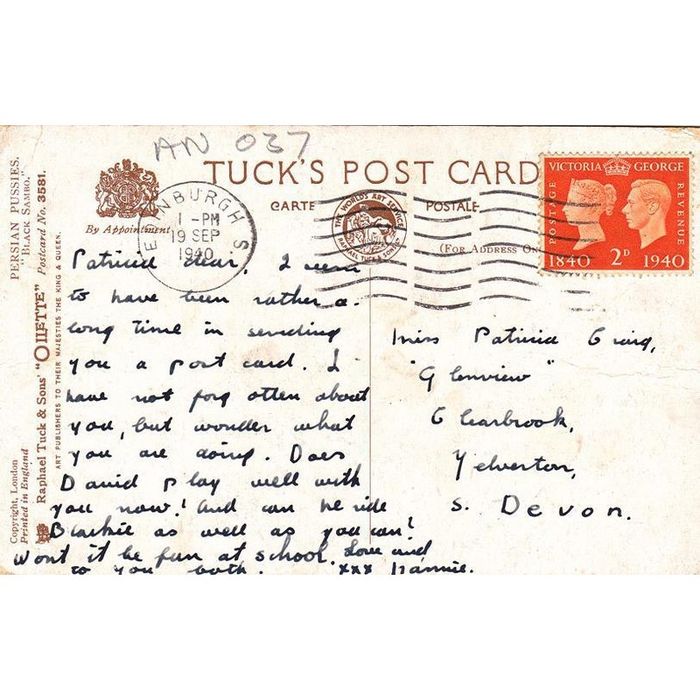 AN 037
TUCK'S POST CARD
CARTE POSTALE
(FOR ADDRESS ON
By Appointment
THE WORLD'S ART SERVICE
RAPHAEL TUCK & SONS LONDON
EDINBURGH
1 - PM
19 SEP
1940
VICTORIA GEORGE
POSTAGE
REVENUE
1840 2D 1940
PERSIAN PUSSIES.
"BLACK SAMBO."
Raphael Tuck & Sons' "OILETTE" Postcard No. 3581.
ART PUBLISHERS TO THEIR MAJESTIES THE KING & QUEEN.
Copyright, London
Printed in England
Patricia dear, I seem
to have been rather a
long time in sending
you a post card. I
have not forgotten about
you, but wonder what
you are doing. Does
David play well with
you now! And can he ride
Blackie as well as you can?
Wont it be fun at school. Love and
to you both. xxx Nannie.
Miss Patricia Craig,
"Glenview"
Clearbrook,
Yelverton,
S. Devon.